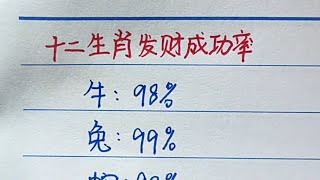 十二生肖发财成功率
牛:98%
兔:99%